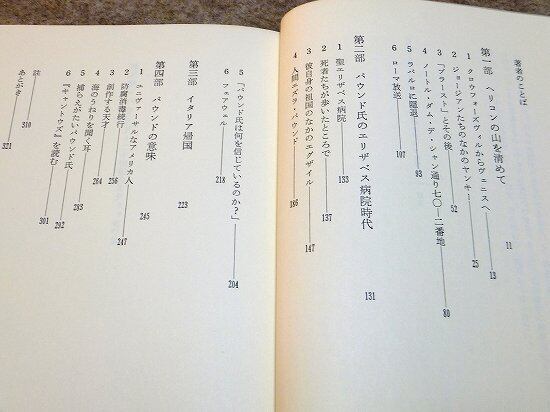 著者のことば
第一部 ヘリコンの山を清めて 11
1 クロウフォーズヴィルからヴェニスへ 13
2 ジョージアンたちのなかのヤンキー 25
3 『ブラースト』とその後 52
4 ノートル・ダム・デ・シャン通り七〇-二番地 80
5 ラパルロに隠退 93
6 ローマ放送 107
第二部 パウンド氏のエリザベス病院時代 131
1 聖エリザベス病院 133
2 死者たちが歩いたところで 137
3 彼自身の祖国のなかのエグザイル 147
4 人間エズラ・パウンド 186
5 「パウンド氏は何を信じているのか?」 204
6 フェアウェル 218
第三部 イタリア帰国 223
第四部 パウンドの意味 245
1 ユニヴァーサルなアメリカ人 247
2 防腐消毒続行 256
3 創作する天才 264
4 海のうねりを聞く耳 283
5 捕らえがたいパウンド氏 292
6 『キャントウズ』を読む 301
註 310
あとがき 321